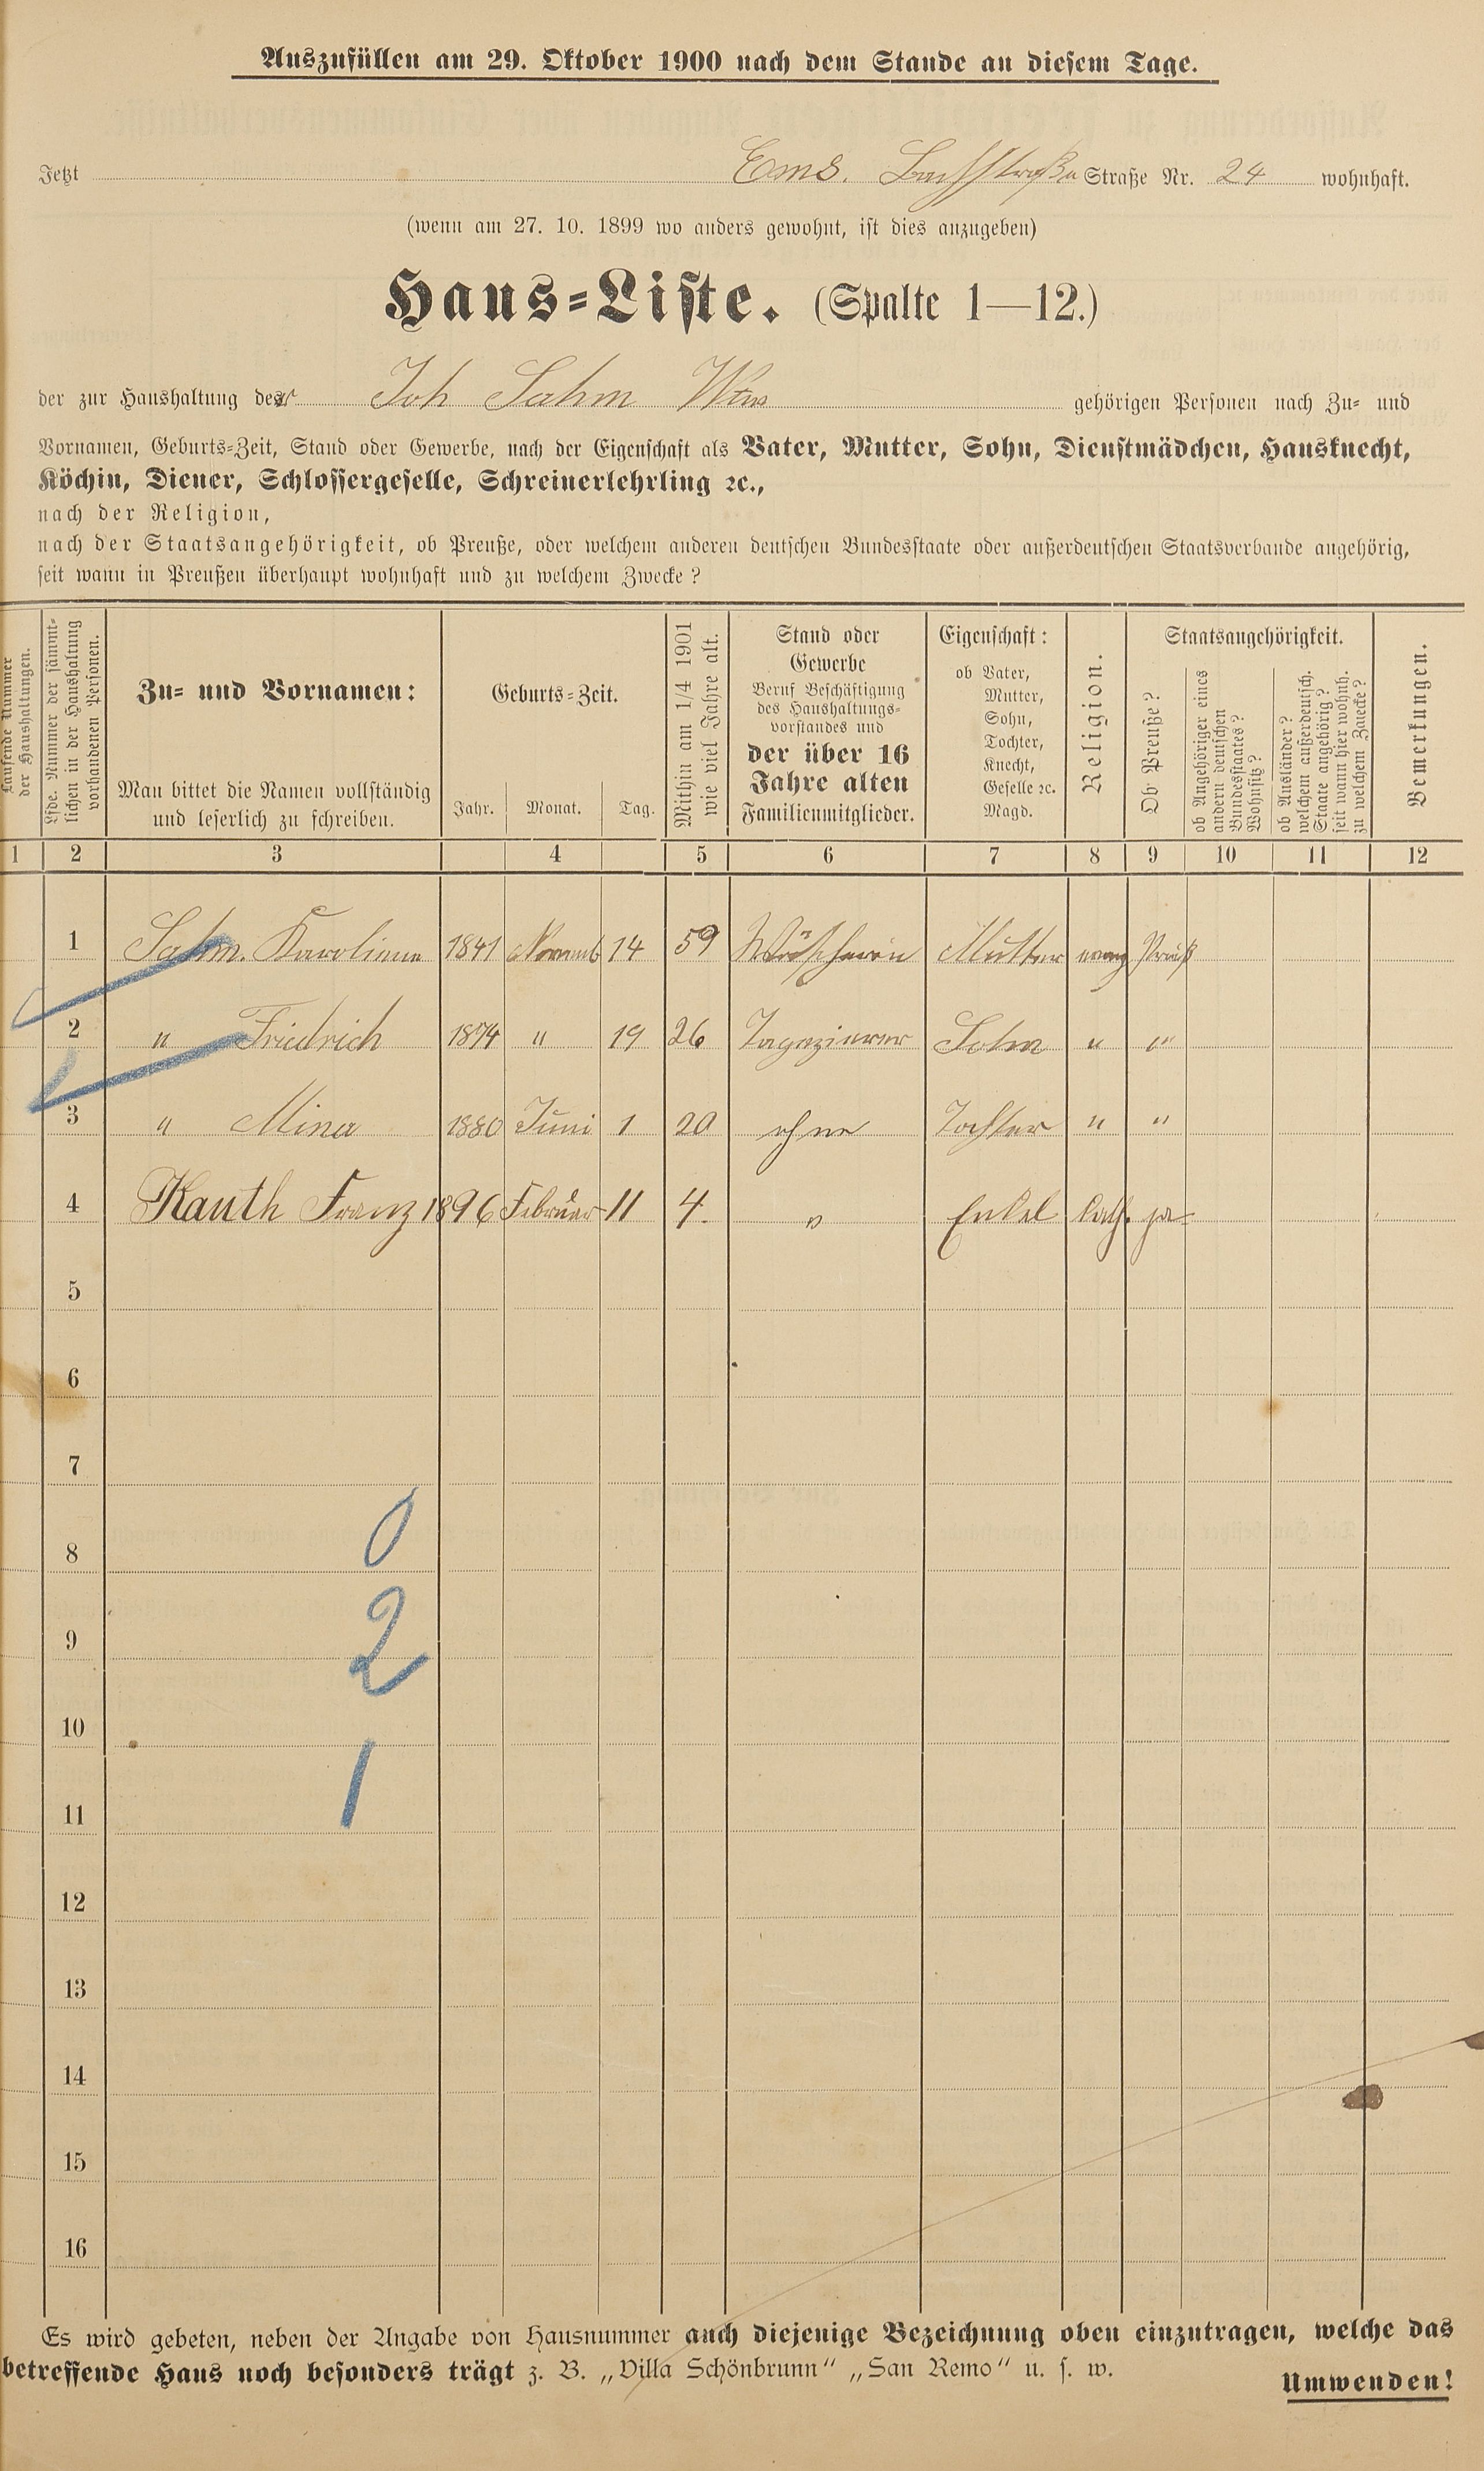 Auszufüllen am 29. Oktober 1900 nach dem Stande an diesem Tage.
Jetzt Ems. Bachstraße Straße Nr. 24 wohnhaft.
(wenn am 27. 10. 1899 wo anders gewohnt, ist dies anzugeben)
Haus-Liste. (Spalte 1—12.)
der zur Haushaltung der Joh Sahm Wtw gehörigen Personen nach Zu- und
Vornamen, Geburts-Zeit, Stand oder Gewerbe, nach der Eigenschaft als Vater, Mutter, Sohn, Dienstmädchen, Hausknecht,
Köchin, Diener, Schlossergeselle, Schreinerlehrling ꝛc.,
nach der Religion,
nach der Staatsangehörigkeit, ob Preuße, oder welchem anderen deutschen Bundesstaate oder außerdeutschen Staatsverbande angehörig,
seit wann in Preußen überhaupt wohnhaft und zu welchem Zwecke?
Laufende Nummer
der Haushaltungen.
Lfde. Nummer der sämmt-
lichen in der Haushaltung
vorhandenen Personen.
Zu- und Vornamen:
Man bittet die Namen vollständig
und leserlich zu schreiben.
Geburts-Zeit.
Jahr. Monat. Tag.
Mithin am 1/4 1901
wie viel Jahre alt.
Stand oder
Gewerbe
Beruf Beschäftigung
des Haushaltungs-
vorstandes und
der über 16
Jahre alten
Familienmitglieder.
Eigenschaft:
ob Vater,
Mutter,
Sohn,
Tochter,
Knecht,
Geselle ꝛc.
Magd.
Religion.
Staatsangehörigkeit.
Ob Preuße?
ob Angehöriger eines
andern deutschen
Bundesstaates?
Wohnsitz?
ob Ausländer?
welchem außerdeutsch.
Staate angehörig?
seit wann hier wohnh.
zu welchem Zwecke?
Bemerkungen.
1 2 3 4 5 6 7 8 9 10 11 12
1 Sahm. Karolina 1841 Novemb 14 59 Wäscherin Mutter evang Preuß
2 " Friedrich 1874 " 19 26 Sohn " "
3 " Mina 1880 Juni 1 20 ohne Tochter " "
4 Kauth Franz 1896 Februar 11 4. " Enkel kath. ja
5
6
7
0
8
2
9
10
1
11
12
13
14
15
16
Es wird gebeten, neben der Angabe von Hausnummer auch diejenige Bezeichnung oben einzutragen, welche das
betreffende Haus noch besonders trägt z. B. „Villa Schönbrunn“ „San Remo“ u. s. w.
Umwenden!